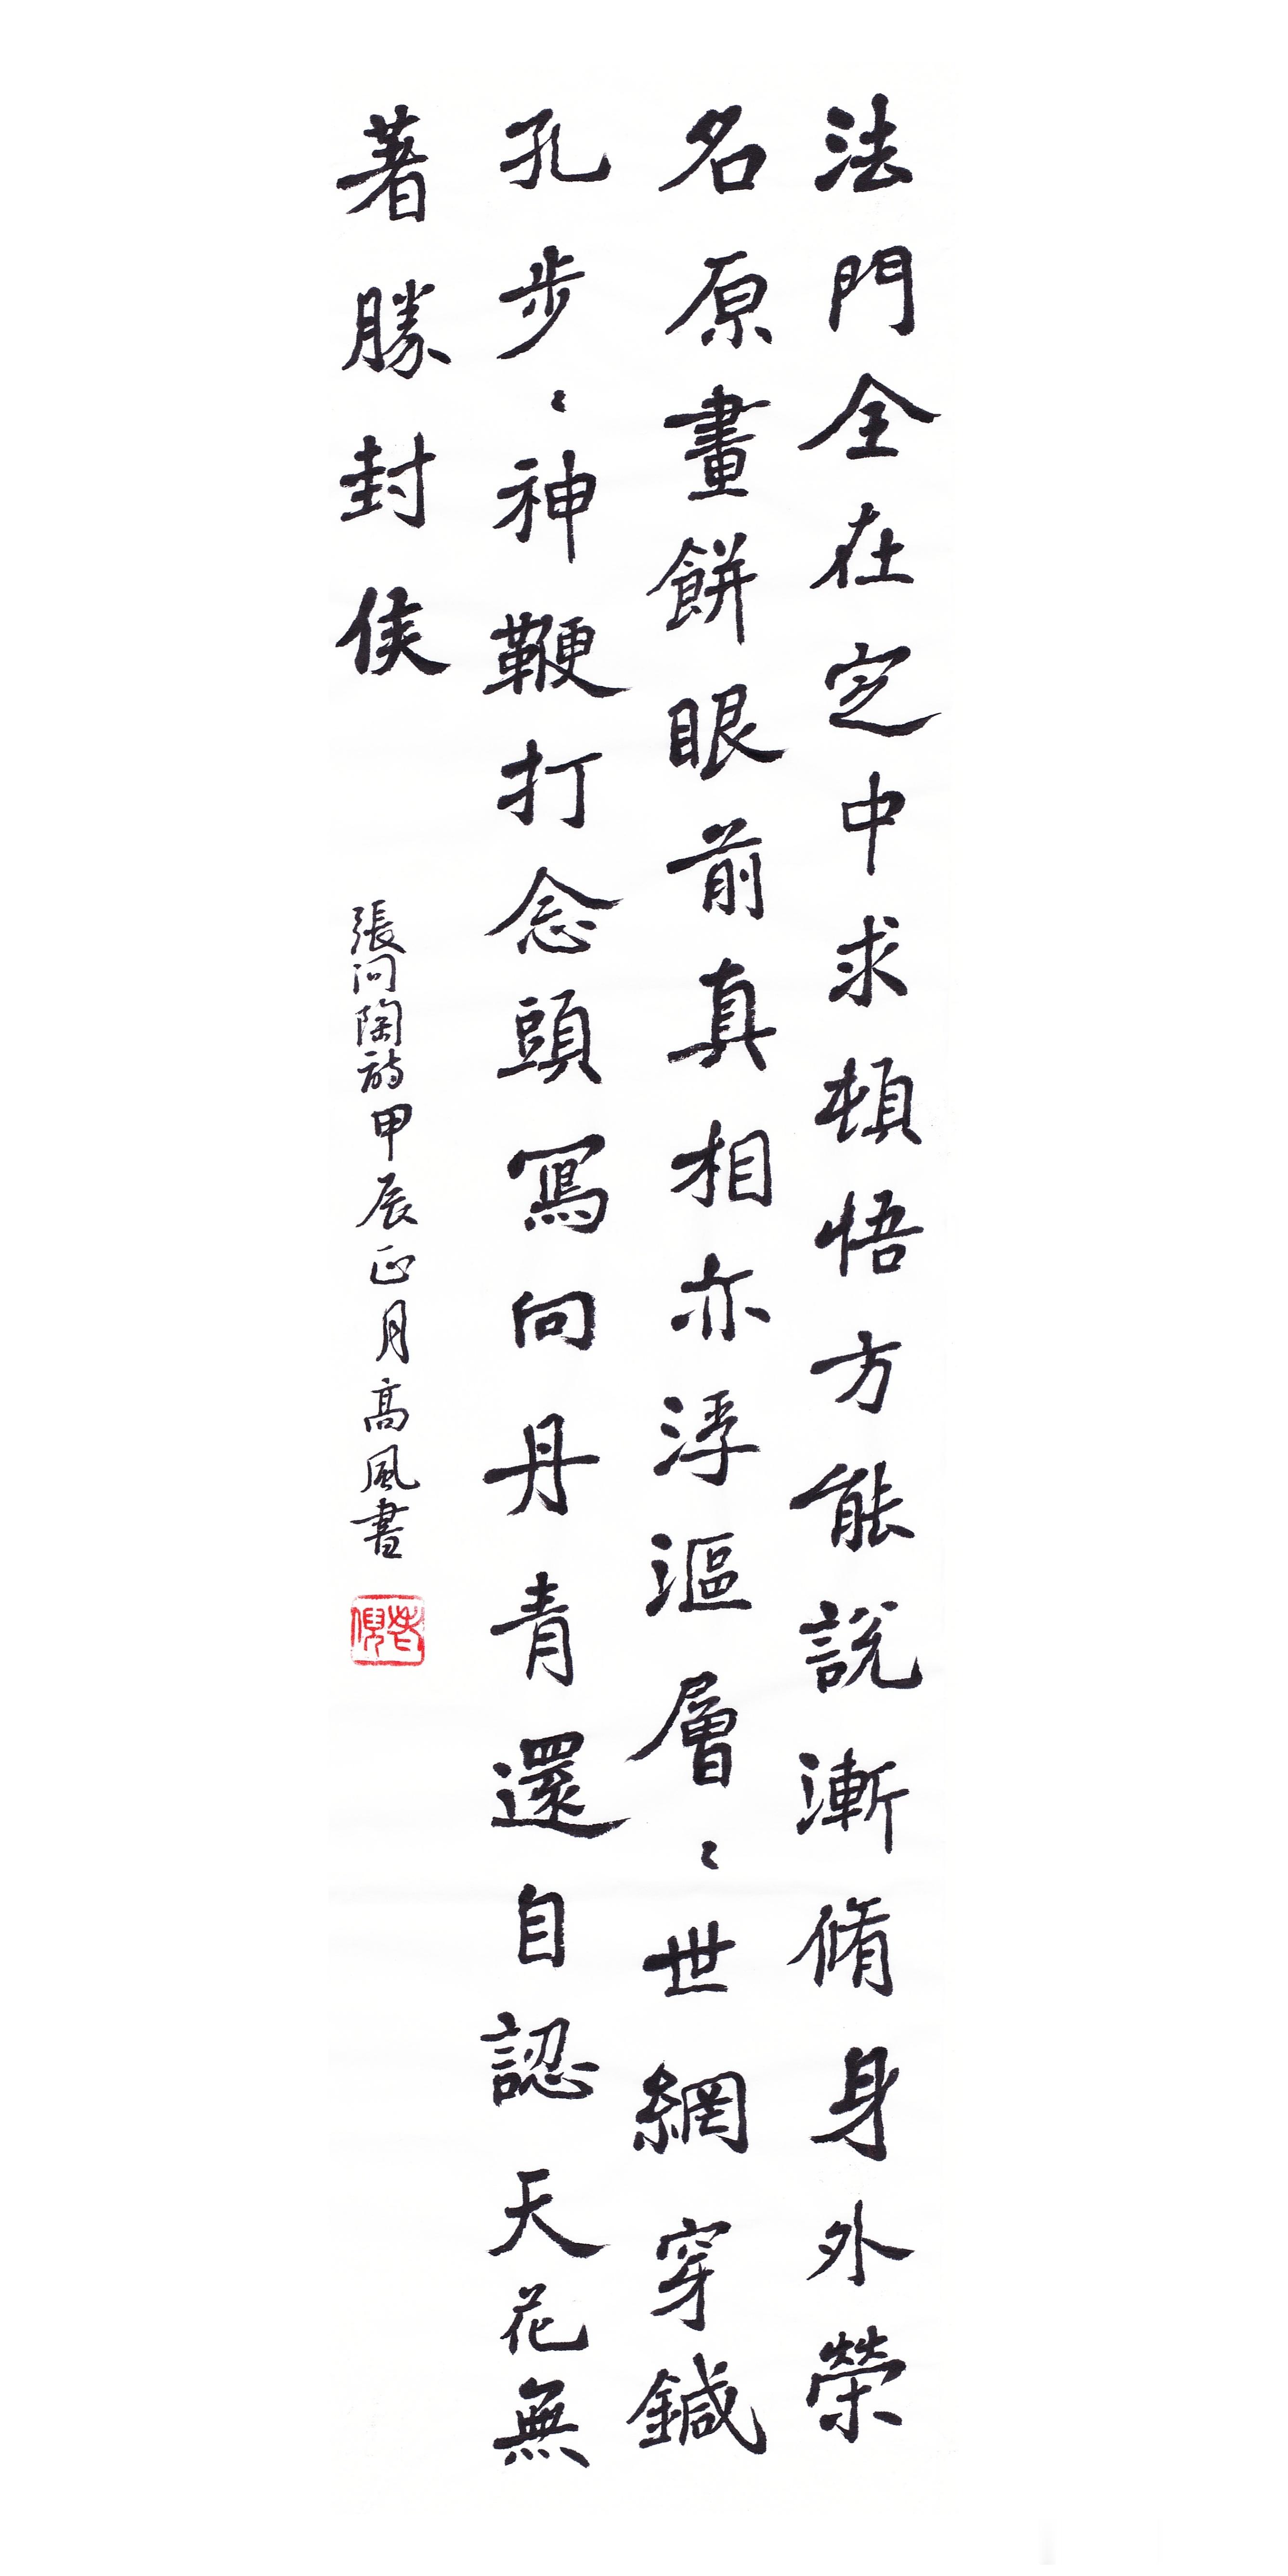 法門全在定中求頓悟方能說漸脩身外榮
名原畫餅眼前真相亦浮漚層〻世網穿鍼
孔步〻神鞭打念頭寫向丹青還自認天花無
著勝封侯
張問陶詩甲辰正月高風書